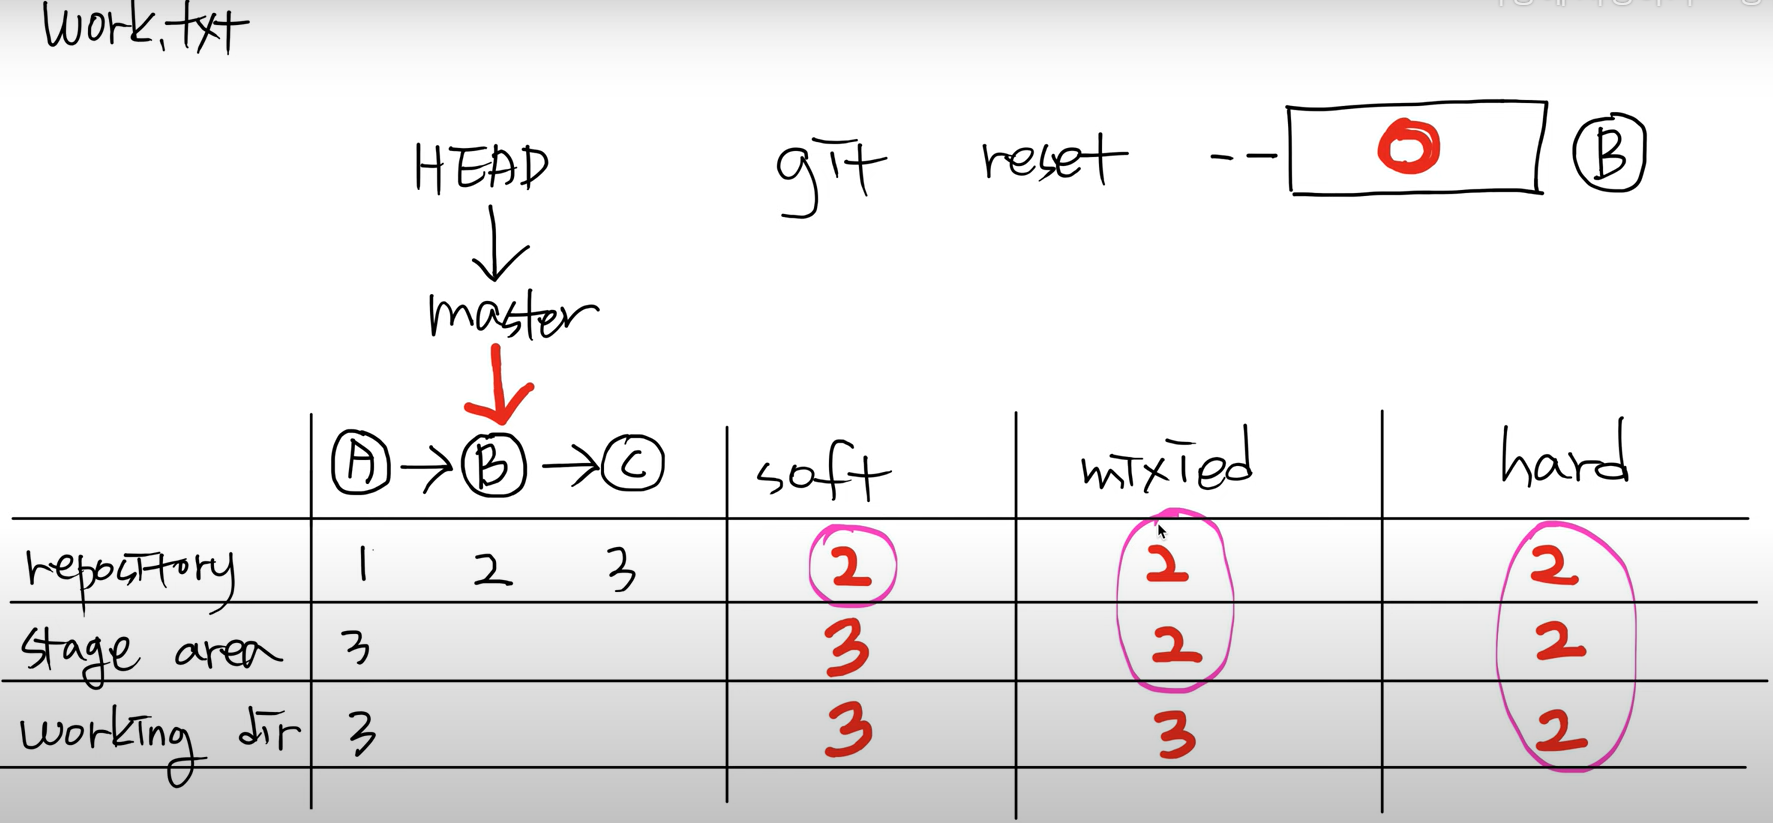 work.txt
HEAD git reset -- O B
master
A → B → C soft mixied hard
repository 1 2 3 2 2 2
stage area 3 3 2 2
working dir 3 3 3 2